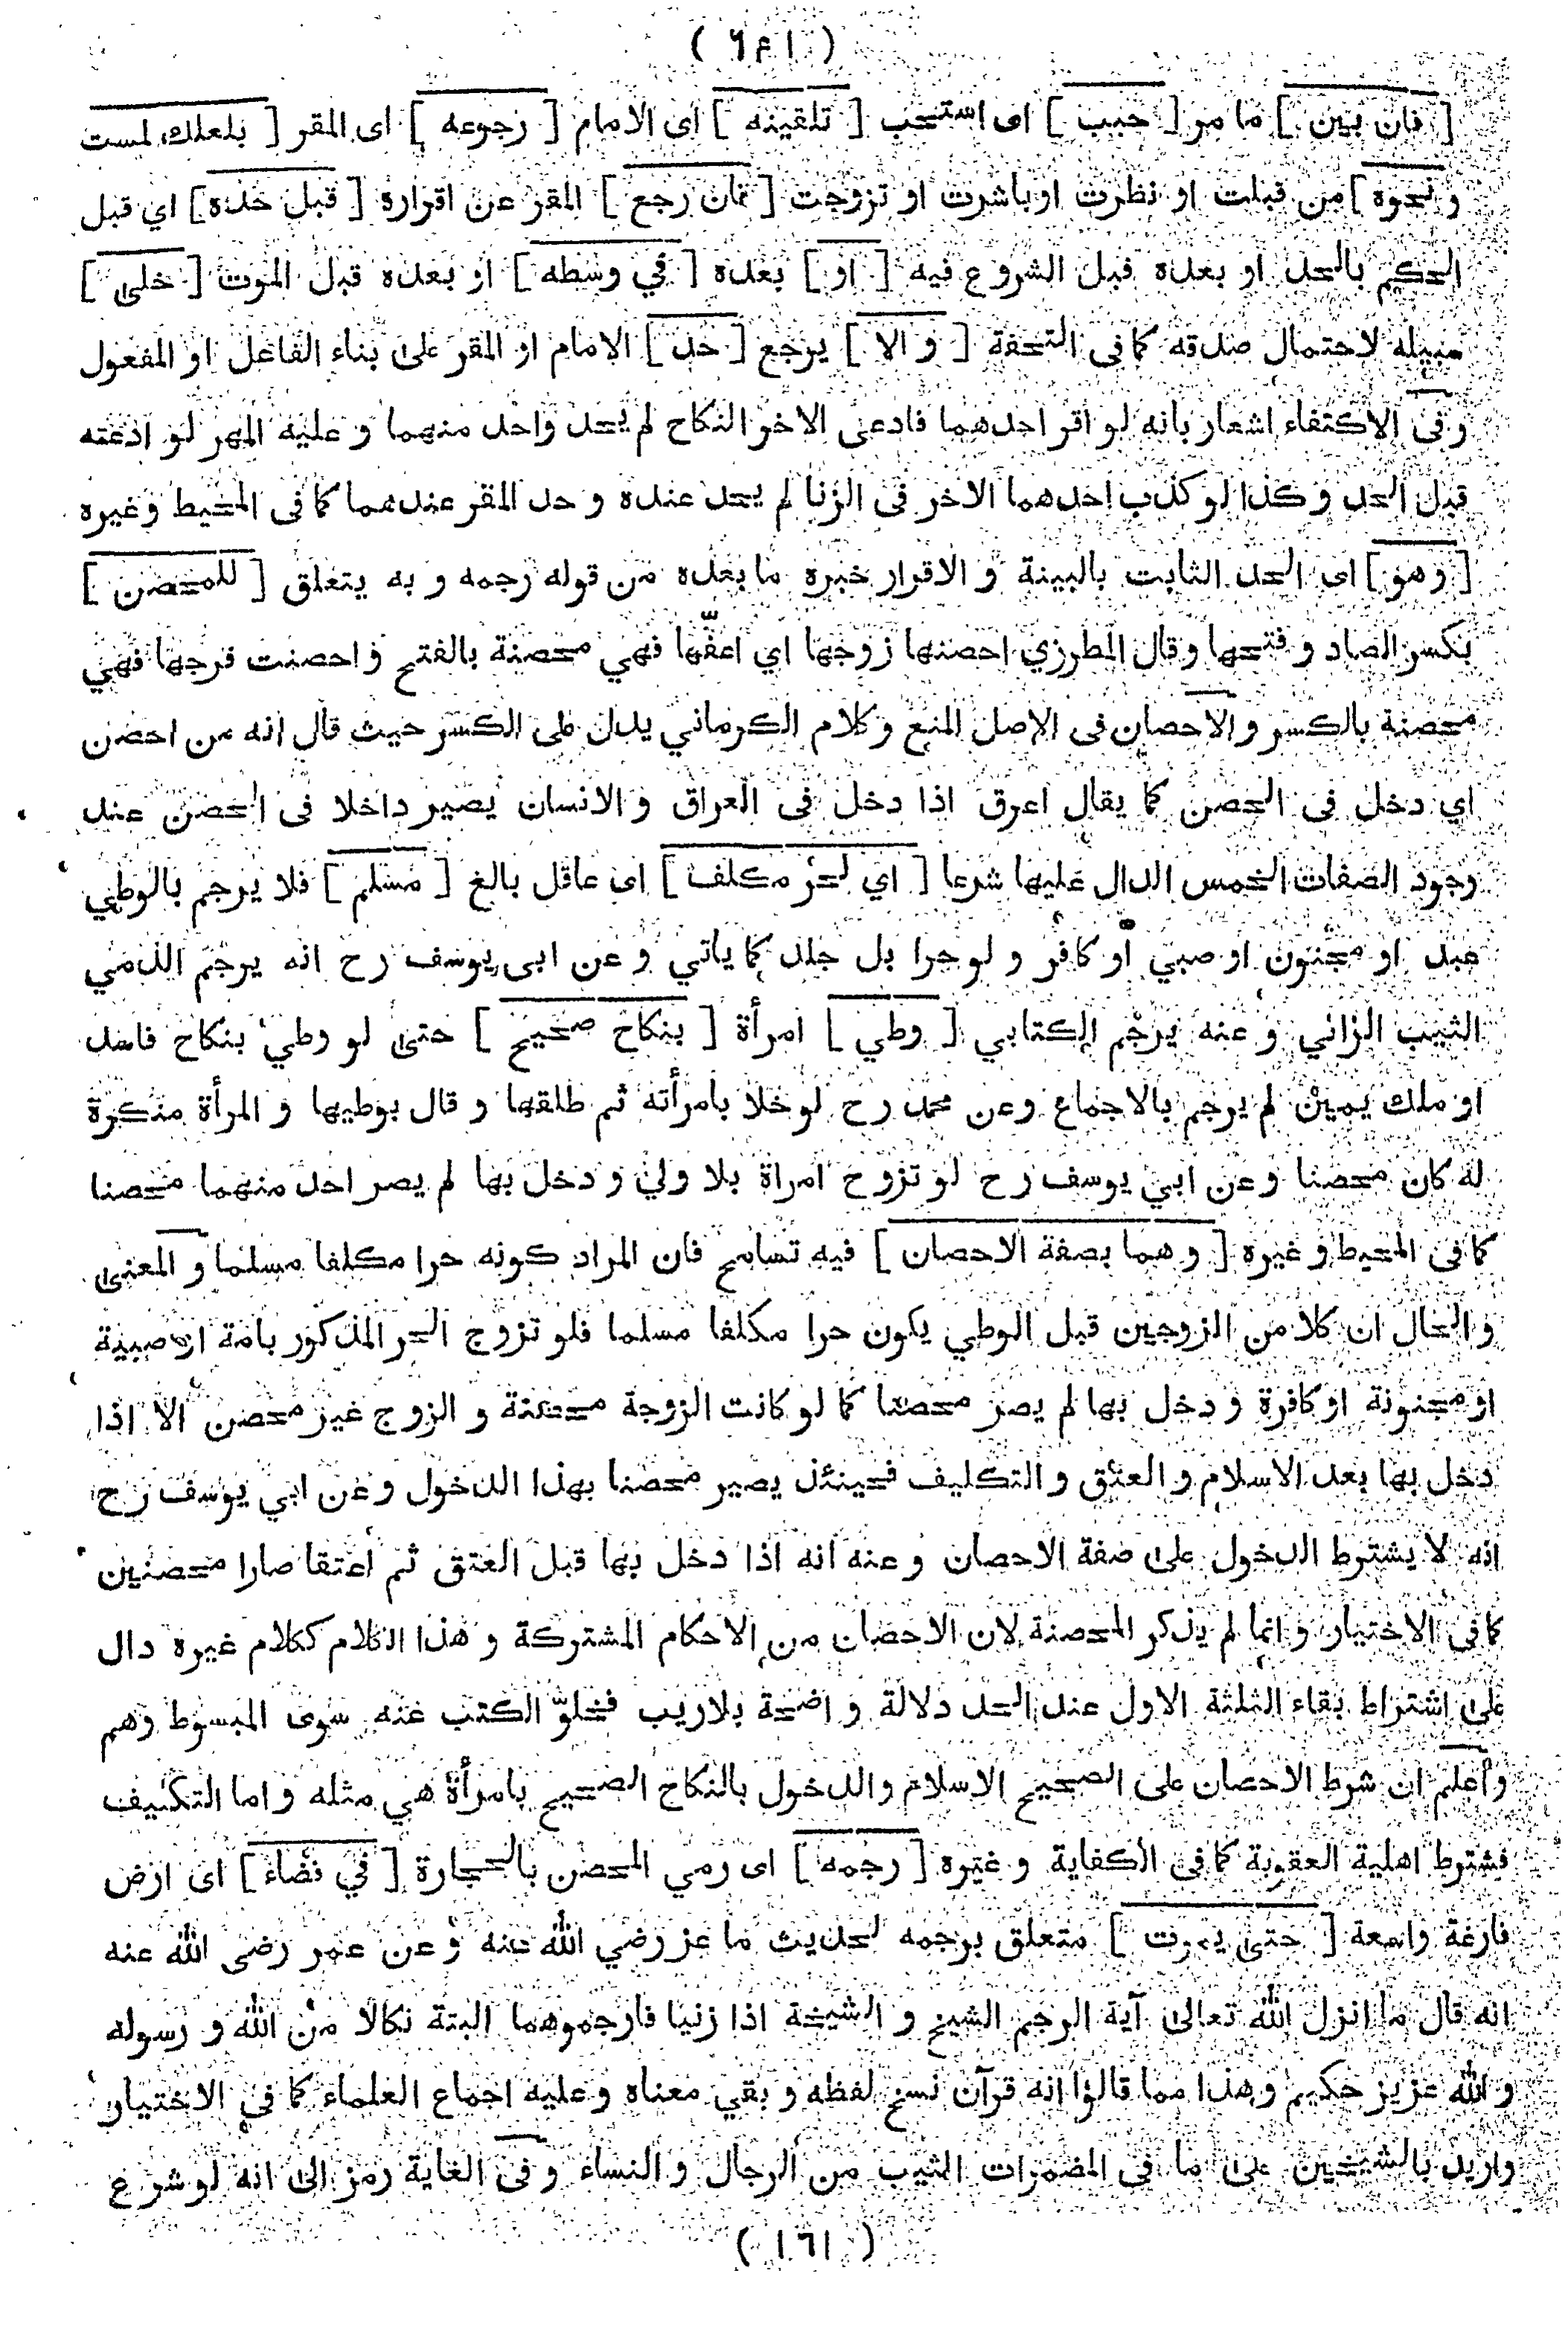 ( ٦٤١ )
[ فان بين ] ما مر [ حبب ] اى استحب [ تلقينه ] اى الامام [ رجوعه ] اى المقر [ بلعلك لمست
و نحوه ] من قبلت او نظرت او باشرت او تزوجت [ فان رجع ] المقر عن اقراره [ قبل حده ] اي قبل
الحكم بالحد او بعده قبل الشروع فيه [ او ] بعده [ في وسطه ] او بعده قبل الموت [ خلى ]
سبيله لاحتمال صدقه كما فى التحفة [ و الا ] يرجع [ حد ] الامام او المقر على بناء الفاعل او المفعول
و فى الاكتفاء اشعار بانه لو اقر احدهما فادعى الاخر النكاح لم يحد واحد منهما و عليه المهر لو ادعته
قبل الحد و كذا لو كذب احدهما الاخر فى الزنا لم يحد عنده و حد المقر عندهما كما فى المحيط وغيره
[ وهو ] اى الحد الثابت بالبينة و الاقرار خبره ما بعده من قوله رجمه و به يتعلق [ للمحصن ]
بكسر الصاد و فتحها وقال المطرزي احصنها زوجها اي اعفّها فهي محصنة بالفتح و احصنت فرجها فهي
محصنة بالكسر و الاحصان فى الاصل المنع و كلام الكرماني يدل على الكسر حيث قال انه من احصن
اي دخل فى الحصن كما يقال اعرق اذا دخل فى العراق و الانسان يصير داخلا فى الحصن عند
وجود الصفات الخمس الدال عليها شرعا [ اي لحر مكلف ] اى عاقل بالغ [ مسلم ] فلا يرجم بالوطي
عبد او مجنون او صبي أو كافر و لو حرا بل جلد كما ياتي و عن ابى يوسف رح انه يرجم الذمي
الثيب الزاني و عنه يرجم الكتابي [ وطي ] امرأة [ بنكاح صحيح ] حتى لو وطي بنكاح فاسد
او ملك يمين لم يرجم بالاجماع وعن محمد رح لو خلا بامرأته ثم طلقها و قال بوطيها و المرأة منكرة
له كان محصنا وعن ابي يوسف رح لو تزوج امراة بلا ولي و دخل بها لم يصر احد منهما محصنا
كما فى المحيط و غيره [ و هما بصفة الاحصان ] فيه تسامح فان المراد كونه حرا مكلفا مسلما و المعنى
و الحال ان كلا من الزوجين قبل الوطي يكون حرا مكلفا مسلما فلو تزوج الحر المذكور بامة او صبية
او مجنونة او كافرة و دخل بها لم يصر محصنا كما لو كانت الزوجة محصنة و الزوج غير محصن الا اذا
دخل بها بعد الاسلام و العتق و التكليف فحينئذ يصير محصنا بهذا الدخول و عن ابي يوسف رح
انه لا يشترط الدخول على صفة الاحصان و عنه انه اذا دخل بها قبل العتق ثم اعتقا صارا محصنين
كما فى الاختيار و انما لم يذكر المحصنة لان الاحصان من الاحكام المشتركة و هذا الكلام ككلام غيره دال
على اشتراط بقاء الثلثة الاول عند الحد دلالة و اضحة بلاريب فخلوّ الكتب عنه سوى المبسوط وهم
و اعلم ان شرط الاحصان على الصحيح الاسلام والدخول بالنكاح الصحيح بامرأة هي مثله و اما التكليف
فشرط اهلية العقوبة كما فى الكفاية و غيره [ رجمه ] اى رمي المحصن بالحجارة [ في فضاء ] اى ارض
فارغة واسعة [ حتى يموت ] متعلق برجمه لحديث ما عز رضي الله عنه و عن عمر رضى الله عنه
انه قال ما انزل الله تعالى آية الرجم الشيخ و الشيخة اذا زنيا فارجموهما البتة نكالا من الله و رسوله
و الله عزيز حكيم وهذا مما قالوا انه قرآن نسخ لفظه و بقي معناه وعليه اجماع العلماء كما في الاختيار
واريد بالشيخين على ما فى المضمرات الثيب من الرجال و النساء و فى الغاية رمز الى انه لو شرع
( ١٦١ )